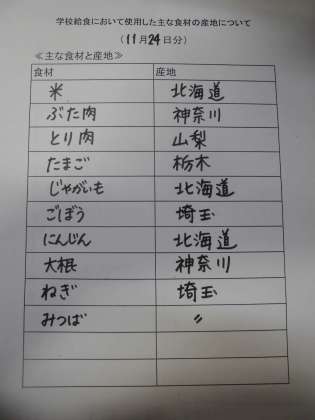 学校給食において使用した主な食材の産地について
(11月24日分)
≪主な食材と産地≫
食材 産地
米 北海道
ぶた肉 神奈川
とり肉 山梨
たまご 栃木
じゃがいも 北海道
ごぼう 埼玉
にんじん 北海道
大根 神奈川
ねぎ 埼玉
みつば 〃